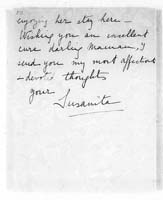 enjoying her stay here —
Wishing you an excellent
cure darling Maman, I
send you my most affection
- devoted thoughts
your
Susanita